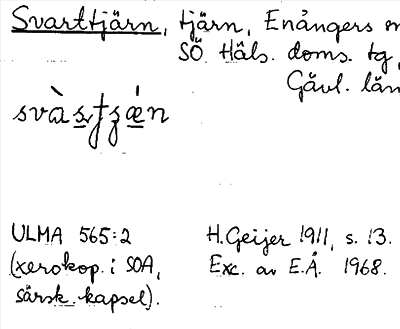 Svarttjärn, tjärn, Enångers
SÖ. Häls. doms. tg,
Gävl. län
ULMA 565:2
(xerokop. i SOA,
särsk. kapsel).
H. Geijer 1911, s. 13.
Exc. av E.Å. 1968.